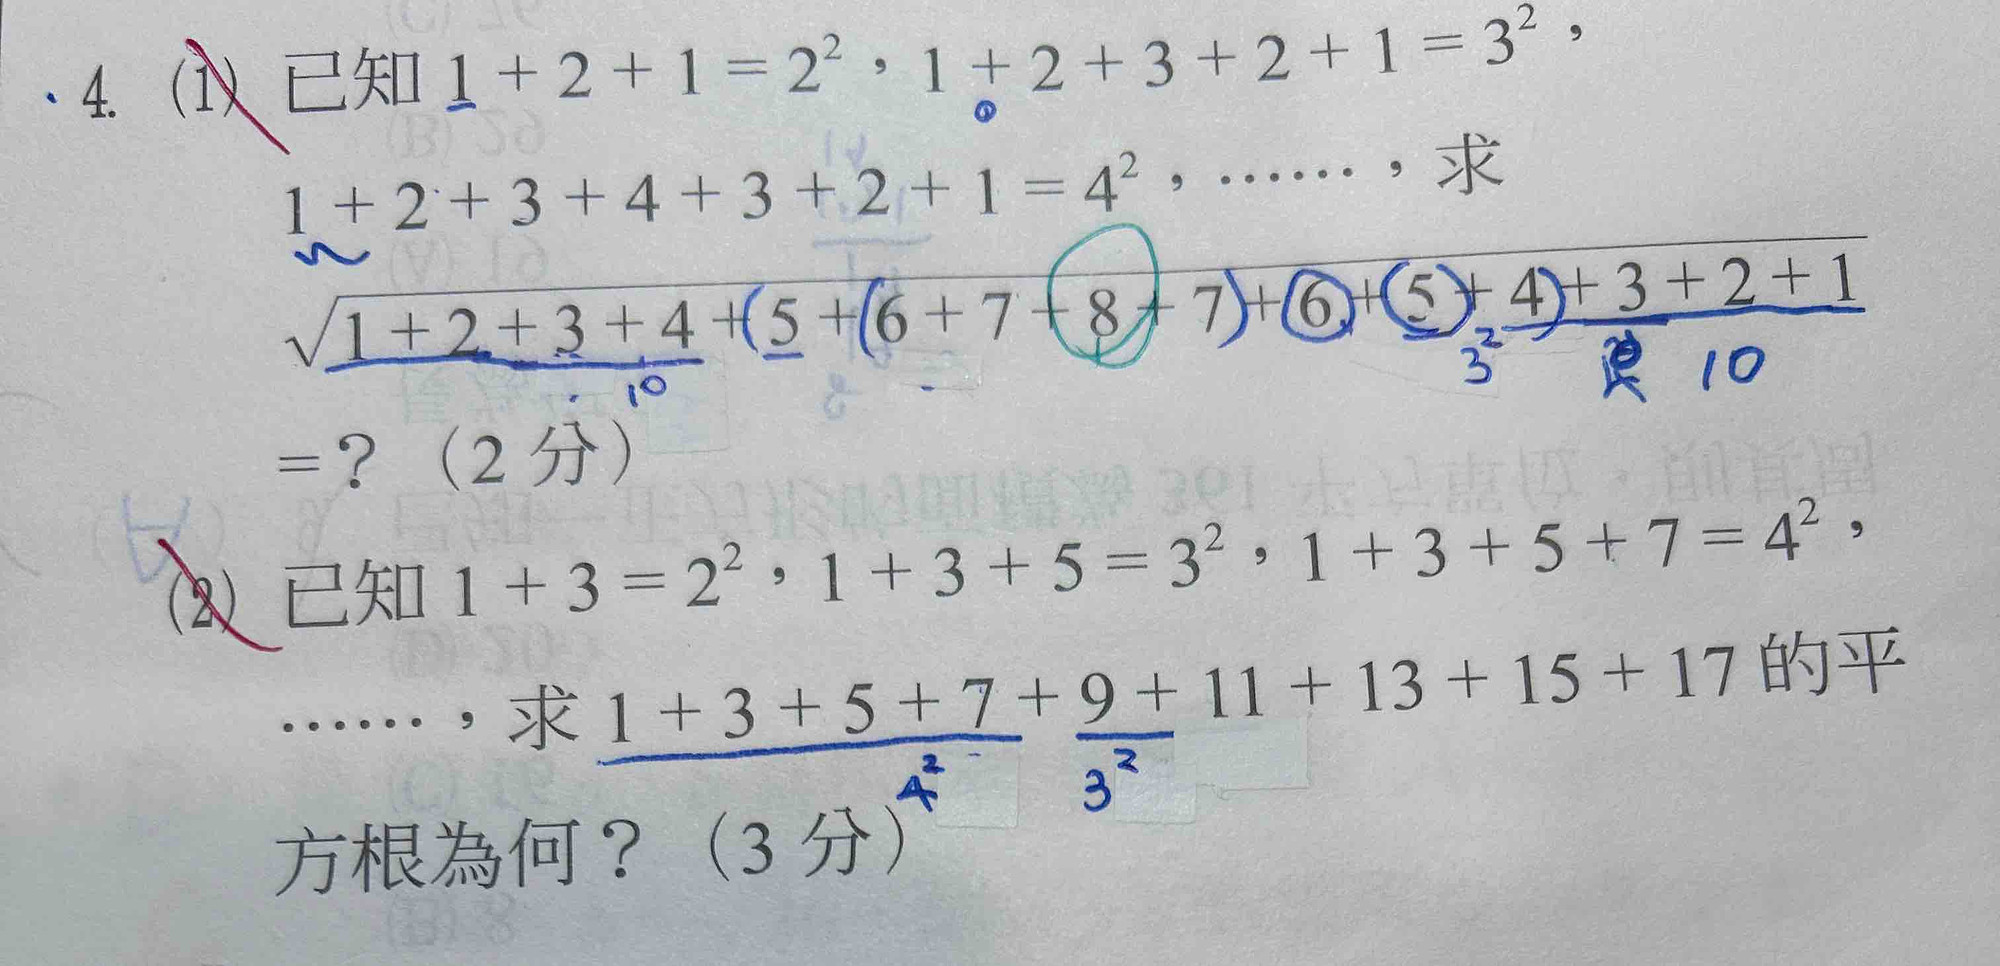 4. (1) 已知 1 + 2 + 1 = 2²，1 + 2 + 3 + 2 + 1 = 3²，
1 + 2 + 3 + 4 + 3 + 2 + 1 = 4²，……，求
√1 + 2 + 3 + 4 + (5 + (6 + 7 + 8 + 7) + 6 + (5) + 4) + 3 + 2 + 1
10 3² 10
= ？（2 分）
(2) 已知 1 + 3 = 2²，1 + 3 + 5 = 3²，1 + 3 + 5 + 7 = 4²，
……，求 1 + 3 + 5 + 7 + 9 + 11 + 13 + 15 + 17 的平
4² 3²
方根為何？（3 分）